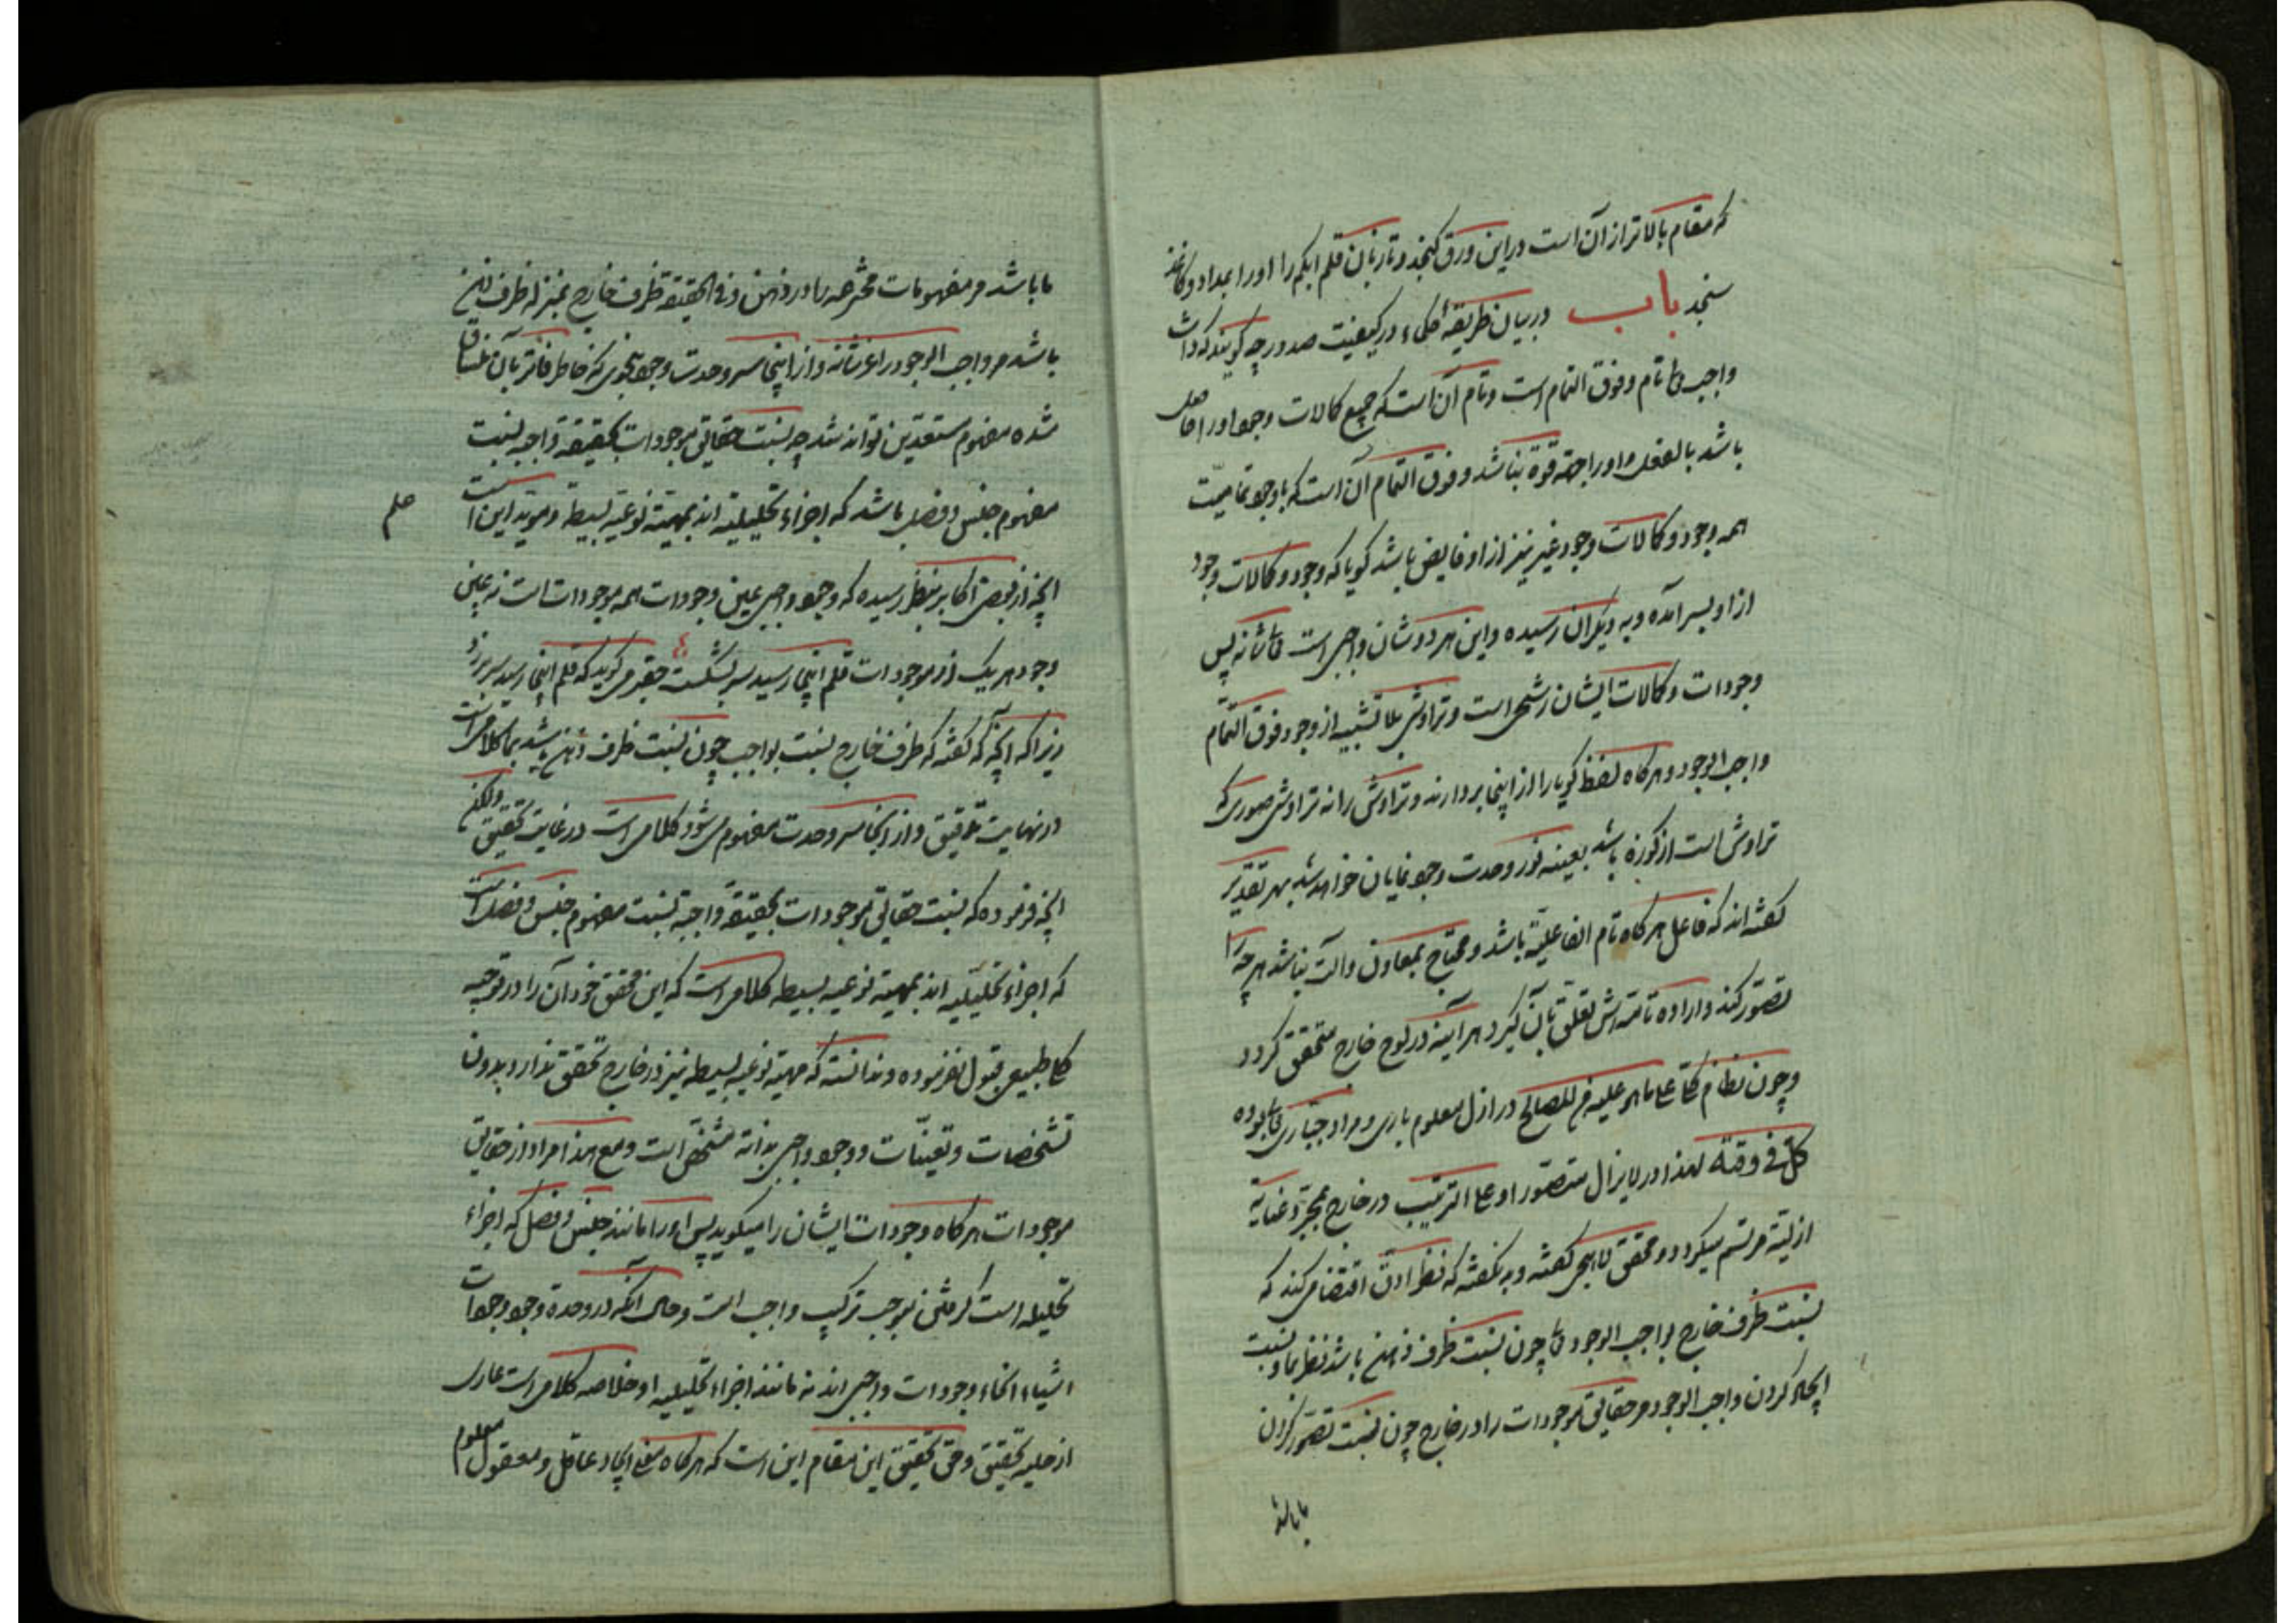 که مقام بالاتر از آن است در این ورق گنجد و تا زبان قلم ابکم را او را بمداد و کاغذ
سنجد باب در بیان طریقهٔ حکماء در کیفیت صدور چه گویند که ذات
واجب تعالی تام و فوق التمام است و تام آن است که جمیع کمالات وجود او را حاصل
باشد بالفعل و او را جهة قوة نباشد و فوق التمام آن است که با وجود تمامیّت
همه وجود و کمالات وجود غیر نیز از او فایض باشد گویا که وجود و کمالات وجود
از او بسر آمده و به دیگران رسیده و این هر دو شان واجبی است تعالی شانه پس
وجودات و کمالات ایشان رشحی است و تراوشی بلا تشبیه از وجود فوق التمام
واجب الوجود و هرگاه لفظ گویا را از اینجا بردارند و تراوش را نه تراوش صوری که
تراوش است از کوزه باشد بعینه نور وحدت وجود نمایان خواهد شد بهر تقدیر
گفته‌اند که فاعل هرگاه تام الفاعلیة باشد و محتاج بمعاون و آلت نباشد هرچه را
تصوّر کند و اراده تامّه‌اش تعلق بآن گیرد هرآینه در لوح خارج متحقق گردد
و چون نظام کلّی علی ما هو علیه من المصالح در ازل معلوم باری و مراد جباری تعالی بوده
کلّ فی وقته لهذا در لایزال متصوّر او علی الترتیب در خارج بمجرّد عنایة
ازلیّة مرتسم میگردد و محقق لاهجی گفته و به نگفته که نظر ادقّ اقتضا می‌کند که
نسبت ظرف خارج بواجب الوجود تعالی چون نسبت ظرف ذهن باشد نظر بما و نسبت
ایجاد کردن واجب الوجود مر حقایق موجودات را در خارج چون نسبت تصوّر کردن
ما باشد
ما باشد مر مفهومات مخترعه را در ذهن و فی الحقیقة ظرف خارج بمنزله ظرف ذهن
باشد مر واجب الوجود را عز شانه و از اینجا سر وحدت وجود بنحوی که خاطر فاتر بآن منساق
شده مفهوم مستعدین تواند شد چه نسبت حقایق موجودات بحقیقة واجبه نسبت
مفهوم جنس و فصل باشد که اجزاء تحلیلیه‌اند بمهیّة نوعیّه بسیطه و مؤید این است
آنچه از بعضی اکابر بنظر رسیده که وجود واجبی عین وجودات همه موجودات است نه عین
وجود هر یک از موجودات قلم اینجا رسید سر بشکست حقیر می‌گوید که قلم اینجا رسید سر بر زد
زیرا که آنچه که گفته که ظرف خارج نسبت بواجب چون نسبت ظرف ذهن باشد بما کلامی است
در نهایت تدقیق و از آنجا سر وحدت مفهوم می‌شود کلامی است در غایت تحقیق ولکن
آنچه فرموده که نسبت حقایق موجودات بحقیقة واجبة نسبت مفهوم جنس و فصل است
که اجزاء تحلیلیه‌اند بمهیّة نوعیه بسیطه کلامی است که این محقق خود آن را در توجیه
کلی طبیعی قبول نفرموده و ندانسته که مهیّة نوعیه بسیطه نیز در خارج تحقق ندارد بدون
تشخصات و تعینّات و وجود واجبی بذاته متشخّص است و مع هذا مراد از حقایق
موجودات هرگاه وجودات ایشان را میگوید پس او را مانند جنس و فصل که اجزاء
تحلیلیه است گرفتن موجب ترکیب واجب است و حال آنکه در وحدة وجود وجودات
اشیاء انحاء وجودات واجبی‌اند نه مانند اجزاء تحلیلیه او خلاصه کلامی است عاری
از حلیه تحقیق و حق تحقیق این مقام این است که هرگاه معنی ایجاد عاقل و معقول معلوم